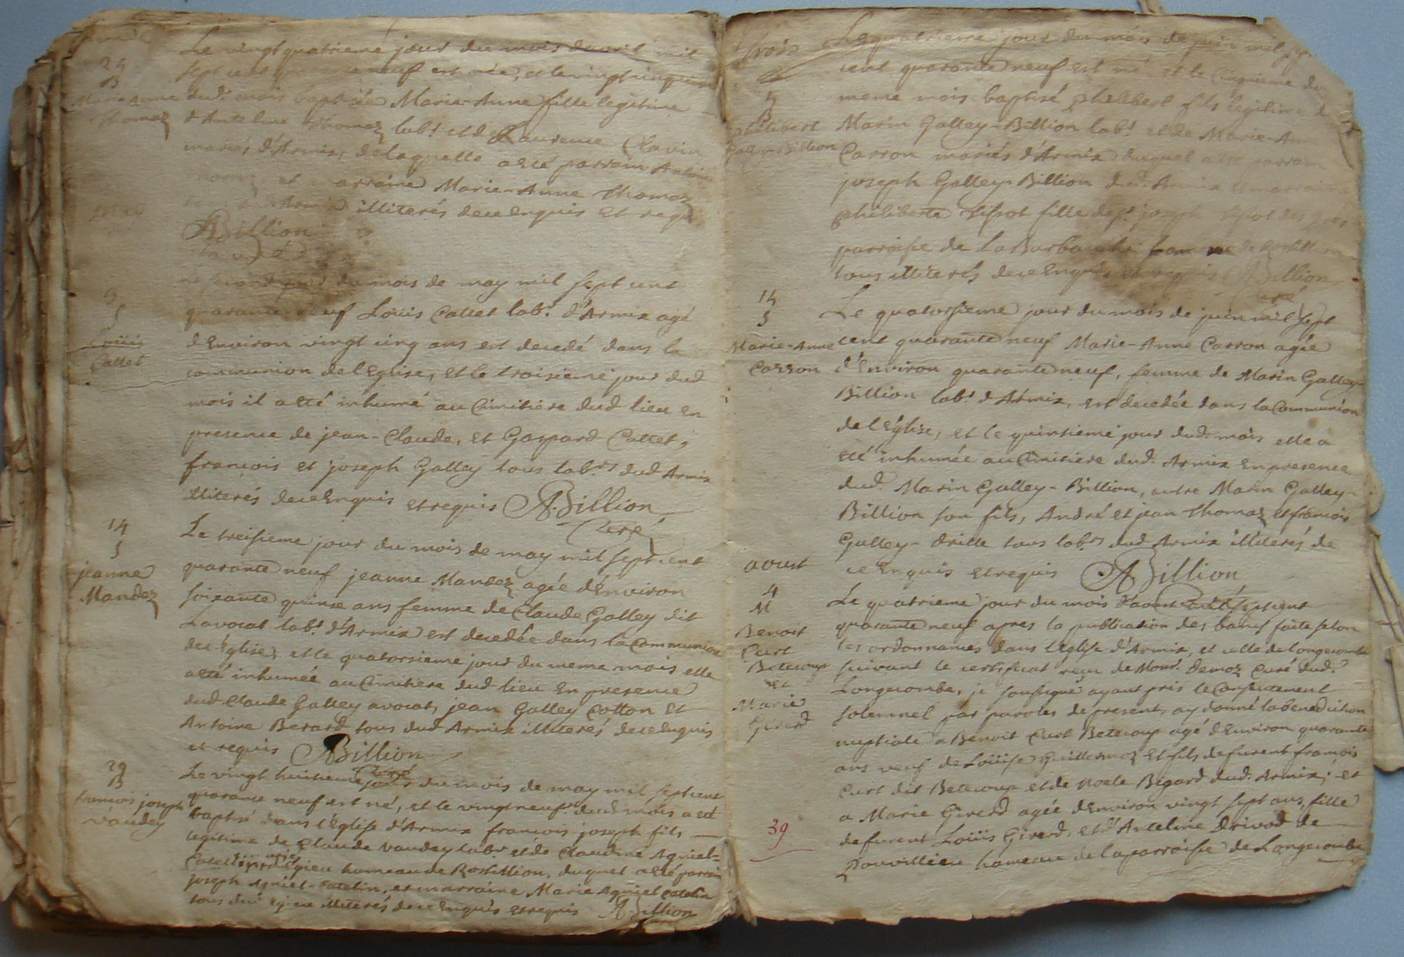 Le vingtquatrieme jour du mois d'avril mil
29
B
Marie Anne
Thomaz
sept cent quarante neuf est née, et le vingtcinquieme
dud. mois baptisée Marie-Anne fille legitime
d'Antelme Thomaz lab.r et de Laurence Clavin
mariés d'Armix, de laquelle a eté parrain Antoine
et marraine Marie-Anne Thomaz
d'Armix illiterés de ce enquis et requis
ABillion
Curé
du mois de may mil sept cent
5
S
Louis
Cattet
quarante neuf Louis Cattet lab.r d'Armix agé
d'Environ vingt cinq ans est decedé dans la
communion de l'Eglise, et le troisieme jour dud
mois il a eté inhumé au Cimitiere dud lieu en
presence de jean-Claude, et Gaspard Cattet,
francois et joseph Galley tous lab.rs dud Armix
illiterés de ce Enquis et requis ABillion
Curé
14
S
jeanne
Mandez
Le treisieme jour du mois de may mil sept cent
quarante neuf jeanne Mandez agée d'Environ
soixante quinse ans femme de Claude Galley dit
Lavocat lab.r d'Armix est decedée dans la Communion
de l'Eglise, et le quatorsieme jour du meme mois elle
a eté inhumée au Cimitiere dud lieu En presence
dud Claude Galley avocat, jean Galley Cotton et
Antoine Berard tous dud Armix illiterés de ce enquis
et requis ABillion
Curé
29
B
francois joseph
Vaudey
Le vingt huitieme jour du mois de may mil sept cent
quarante neuf est né, et le vingt neuf.e dud mois a eté
baptisé dans l'Eglise d'Armix francois joseph fils
legitime de Claude Vaudey lab.r et de Claudine Agniel-
Catelin d'Egieu hameau de Rossillion, duquel a eté parrain
joseph Agniel-Catelin, et marraine Marie Agniel Catelin
tous dud Egieu illiterés de ce Enquis et requis ABillion
Le quatrieme jour du mois de juin mil sept
5
B
philibert
Galley-Billion
cent quarante neuf est né et le Cinquieme du
meme mois baptisé philibert fils legitime de
Marin Galley-Billion lab.r et de Marie-Anne
Carron mariés d'Armix duquel a eté parrain
joseph Galley-Billion dud. Armix et marraine
philiberte fille de f.t joseph
parroisse de La Burbanche hameau de
tous illiterés de ce Enquis et requis ABillion
Curé
14
S
Marie-Anne
Carron
Le quatorsieme jour du mois de juin mil sept
cent quarante neuf Marie-Anne Carron agée
d'Environ quarante neuf, femme de Marin Galley-
Billion lab.r d'Armix, est decedée dans la Communion
de l'Eglise, et le quinsieme jour dud. mois elle a
eté inhumée au Cimitiere dud. Armix en presence
dud Marin Galley-Billion, autre Marin Galley-
Billion son fils, André et jean Thomaz et francois
Galley- Drille tous lab.rs dud Armix illiterés de
ce Enquis et requis ABillion
Curé
aoust
4
M
Benoit
Curt
Betecoup
et
Marie
Girerd
Le quatrieme jour du mois d'aoust mil sept cent
quarante neuf apres la publication des bancs faite selon
les ordonnances dans l'Eglise d'Armix, et celle de Longecombe
suivant le certificat receu de Mons.r Demoz Curé dud.
Longecombe, je soussigné ayant pris le Consentement
solemnel par paroles de present, ay donné la benediction
nuptiale a Benoit Curt Betecoup agé d'Environ quarante
ans veuf de Loüise Guillermoz et fils de furent francois
Curt dit Betecoup et de Noele Begard dud. Armix; et
a Marie Girerd agée d'Environ vingt sept ans, fille
de furent Loüis Girerd, et d'Anteline Drivod de
Douvillieu hameau de la parroisse de Longecombe
39